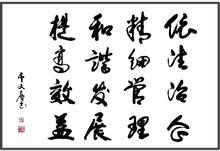 依法治企
精细管理
和谐发展
提高效益